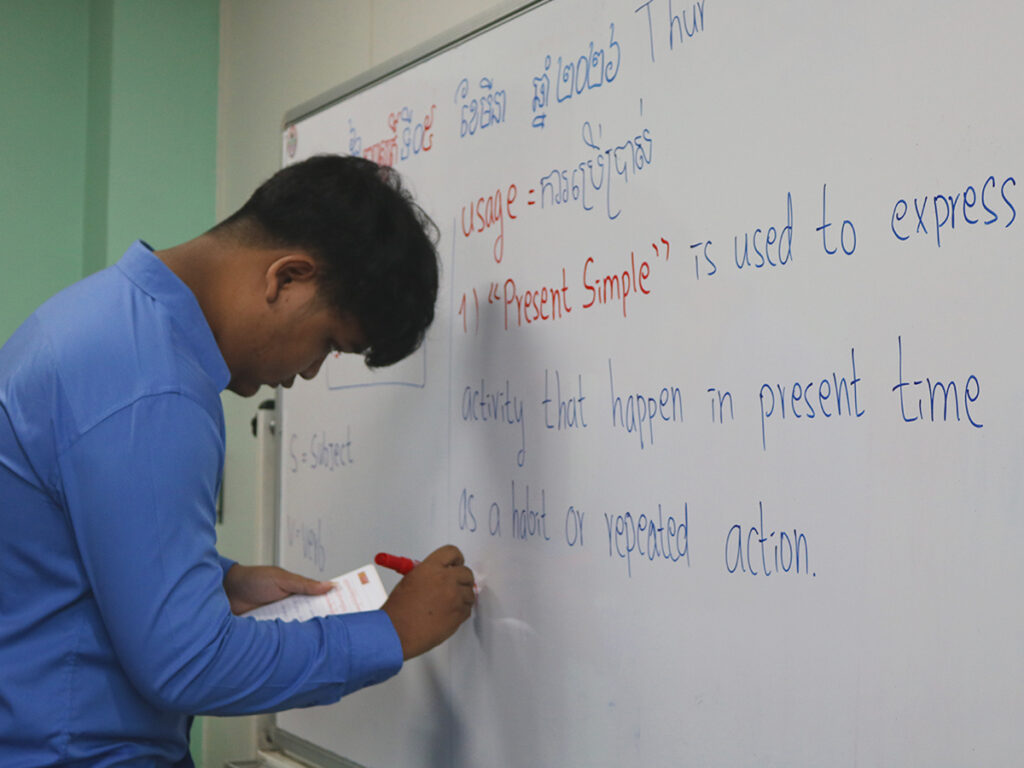 ទី០៥ ខែមីនា ឆ្នាំ២០២៦ Thur
usage = ការប្រើប្រាស់
1) “Present Simple” is used to express
activity that happen in present time
as a habit or repeated action.
S = Subject
V = Verb